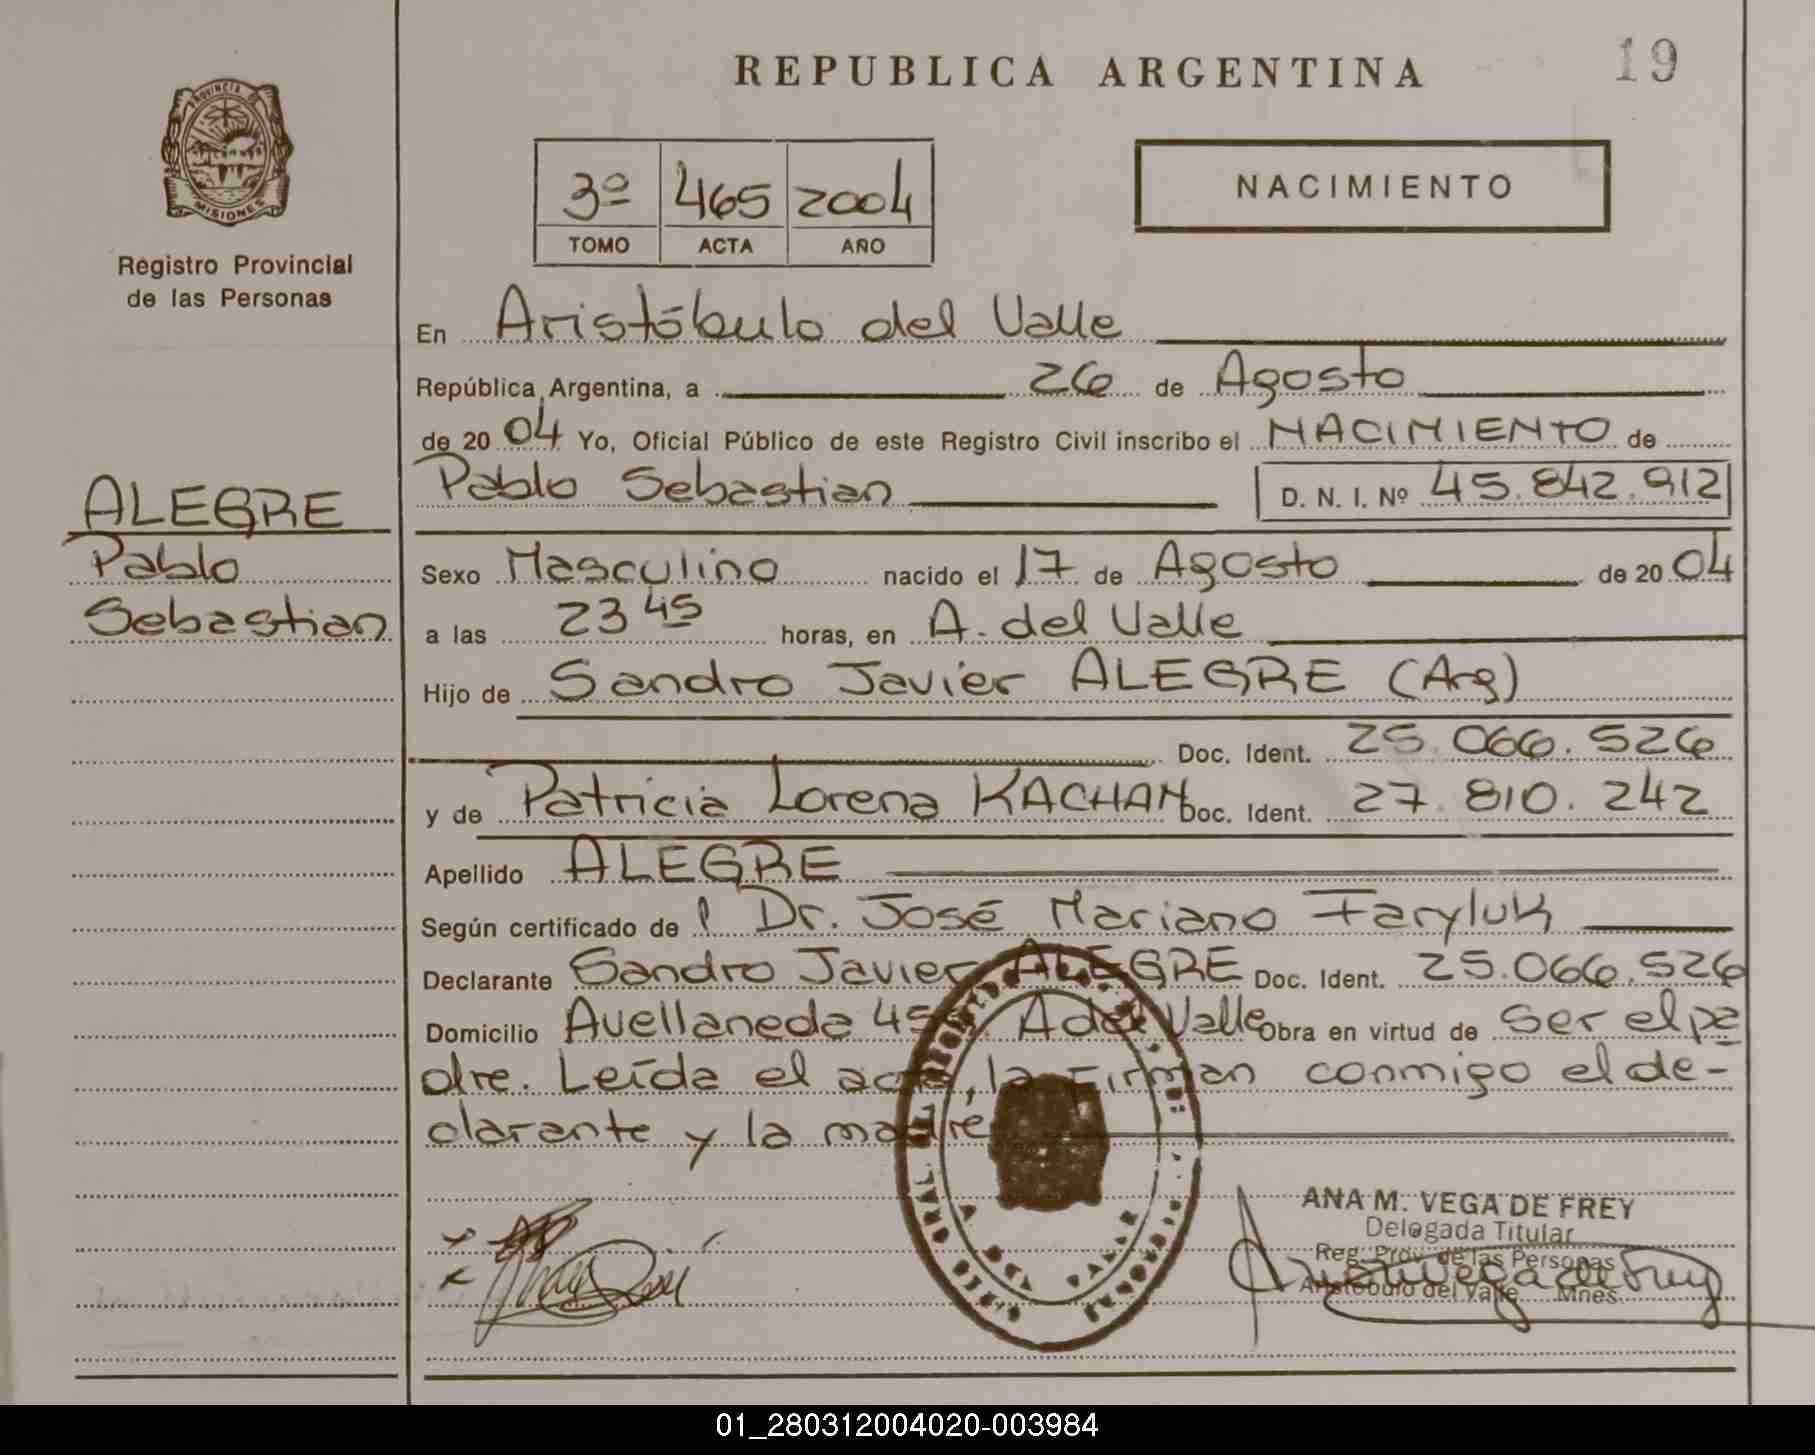 REPUBLICA ARGENTINA
19
PROVINCIA DE
MISIONES
Registro Provincial
de las Personas
3º 465 2004
TOMO ACTA AÑO
NACIMIENTO
En Aristóbulo del Valle
República Argentina, a 26 de Agosto
de 2004 Yo, Oficial Público de este Registro Civil inscribo el NACIMIENTO de
Pablo Sebastian D. N. I. Nº 45.842.912
ALEGRE
Pablo
Sebastian
Sexo Masculino nacido el 17 de Agosto de 2004
a las 23 45 horas, en A. del Valle
Hijo de Sandro Javier ALEGRE (Arg)
Doc. Ident. 25.066.526
y de Patricia Lorena KACHAN Doc. Ident. 27.810.242
Apellido ALEGRE
Según certificado de l Dr. José Mariano Faryluk
Declarante Sandro Javier ALEGRE Doc. Ident. 25.066.526
Domicilio Avellaneda A del Valle Obra en virtud de ser el pa
dre. Leída el acta, la firman conmigo el de-
clarante y la madre
ANA M. VEGA DE FREY
Delegada Titular
Reg. Prov. de las Personas
Aristóbulo del Valle Mnes.
01_280312004020-003984